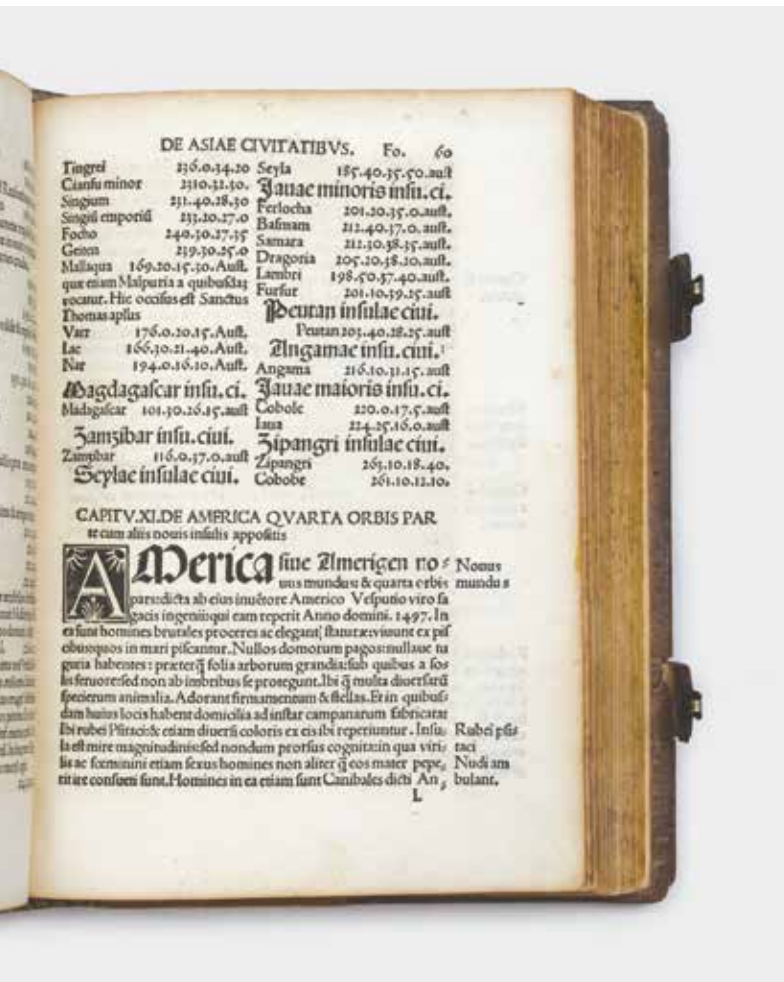 DE ASIAE CIVITATIBVS. Fo. 60
Tingrei 236.0.34.20
Cianfu minor 2310.32.30.
Singium 231.40.28.30
Singiū emporiū 233.20.27.0
Focho 240.30.27.35
Geiten 239.30.25.0
Mallaqua 169.20.15.30. Aust.
quæ etiam Malpuria a quibusdā
vocatur. Hic occisus est Sanctus
Thomas apłus
Varr 176.0.20.15. Aust.
Lac 166.30.21.40. Aust.
Nar 194.0.16.10. Aust.
Magdagascar insu.ci.
Madagascar 101.30.26.15.aust
Zamzibar insu.ciui.
Zamzibar 116.0.37.0.aust
Seylae insulae ciui.
Seyla 185.40.35.50.aust
Jauae minoris insu.ci.
Ferlocha 201.20.35.0.aust.
Basmam 212.40.37.0.aust.
Samara 212.30.38.35.aust.
Dragoria 205.20.38.20.aust.
Lambri 198.50.37.40.aust.
Fursur 201.10.39.25.aust
Peutan insulae ciui.
Peutan 203.40.28.25.aust
Angamae insu.ciui.
Angama 216.10.31.15.aust
Jauae maioris insu.ci.
Cobole 220.0.17.5.aust
Iaua 224.25.16.0.aust
Zipangri insulae ciui.
Zipangri 263.10.18.40.
Cobobe 261.10.12.10.
CAPITV.XI.DE AMERICA QVARTA ORBIS PAR
te cum aliis nouis insulis appositis
AMerica siue Amerigen no⸗ Nouus
uus mundus: & quarta orbis mundus
pars: dicta ab eius inuētore Americo Vesputio viro sa
gacis ingenii: qui eam reperit Anno domini. 1497. In
ea sunt homines brutales proceres ac elegantis staturæ: viuunt ex pis
cibus: quos in mari piscantur. Nullos domorum pagos: nullaue tu
guria habentes: præterq̄ folia arborum grandia: sub quibus a so⸗
lis feruore: sed non ab imbribus se protegunt. Ibi q̄ multa diuersarū
specierum animalia. Adorant firmamentum & stellas. Et in quibus⸗
dam huius locis habent domicilia ad instar campanarum fabricatas
Ibi rubei Psitaci: & etiam diuersi coloris ex eis ibi reperiuntur. Insu⸗ Rubei psi⸗
la est mire magnitudinis: sed nondum prorsus cognita: in qua viri⸗ taci
lis ac fœminini etiam sexus homines non aliter q̄ eos mater pepe⸗ Nudi am
rit ire consueti sunt. Homines in ea etiam sunt Canibales dicti An⸗ bulant.
L